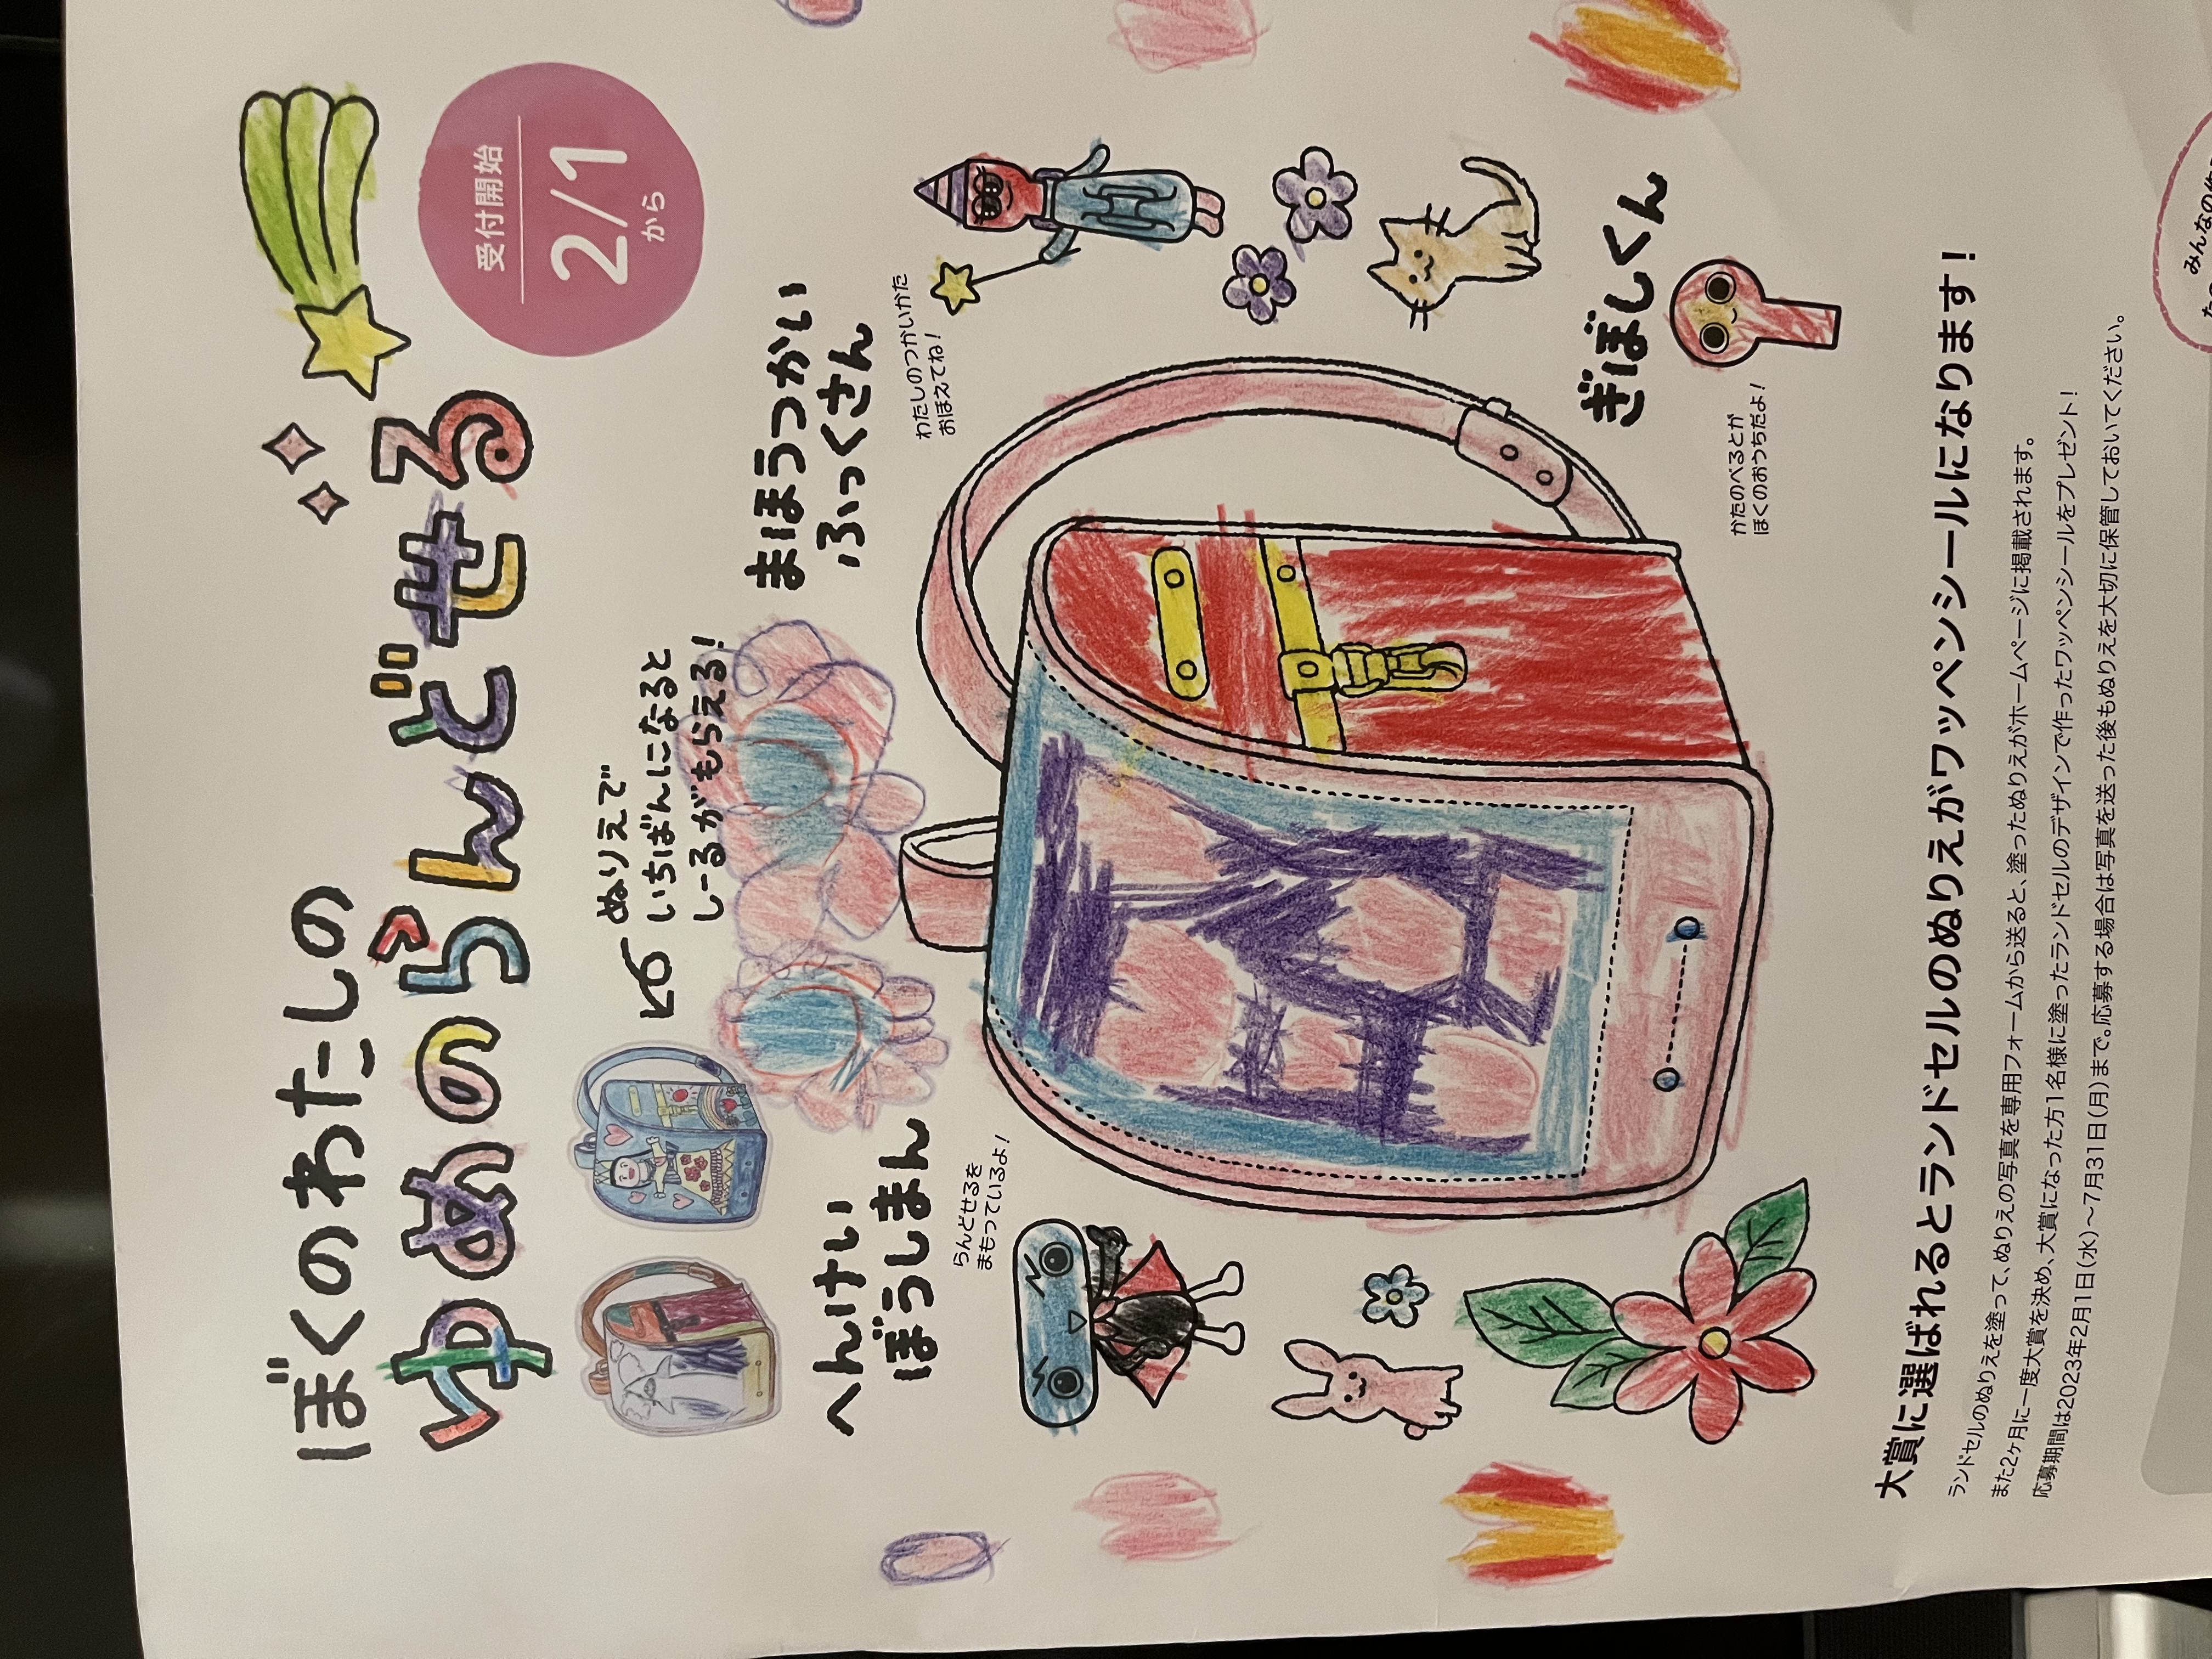 ぼくのわたしの
ゆめのらんどせる
受付開始
2/1
から
ぬりえで
いちばんになると
しーるがもらえる!
まほうつかい
ふっくさん
わたしのつかいかた
おぼえてね!
へんけい
ぼうしまん
らんどせるを
まもっているよ!
ぎぼしくん
かたのべるとが
ぼくのおうちだよ!
大賞に選ばれるとランドセルのぬりえがワッペンシールになります!
ランドセルのぬりえを塗って、ぬりえの写真を専用フォームから送ると、塗ったぬりえがホームページに掲載されます。
また2ヶ月に一度大賞を決め、大賞になった方1名様に塗ったランドセルのデザインで作ったワッペンシールをプレゼント!
応募期間は2023年2月1日(水)~7月31日(月)まで。応募する場合は写真を送った後もぬりえを大切に保管しておいてください。
みんなの